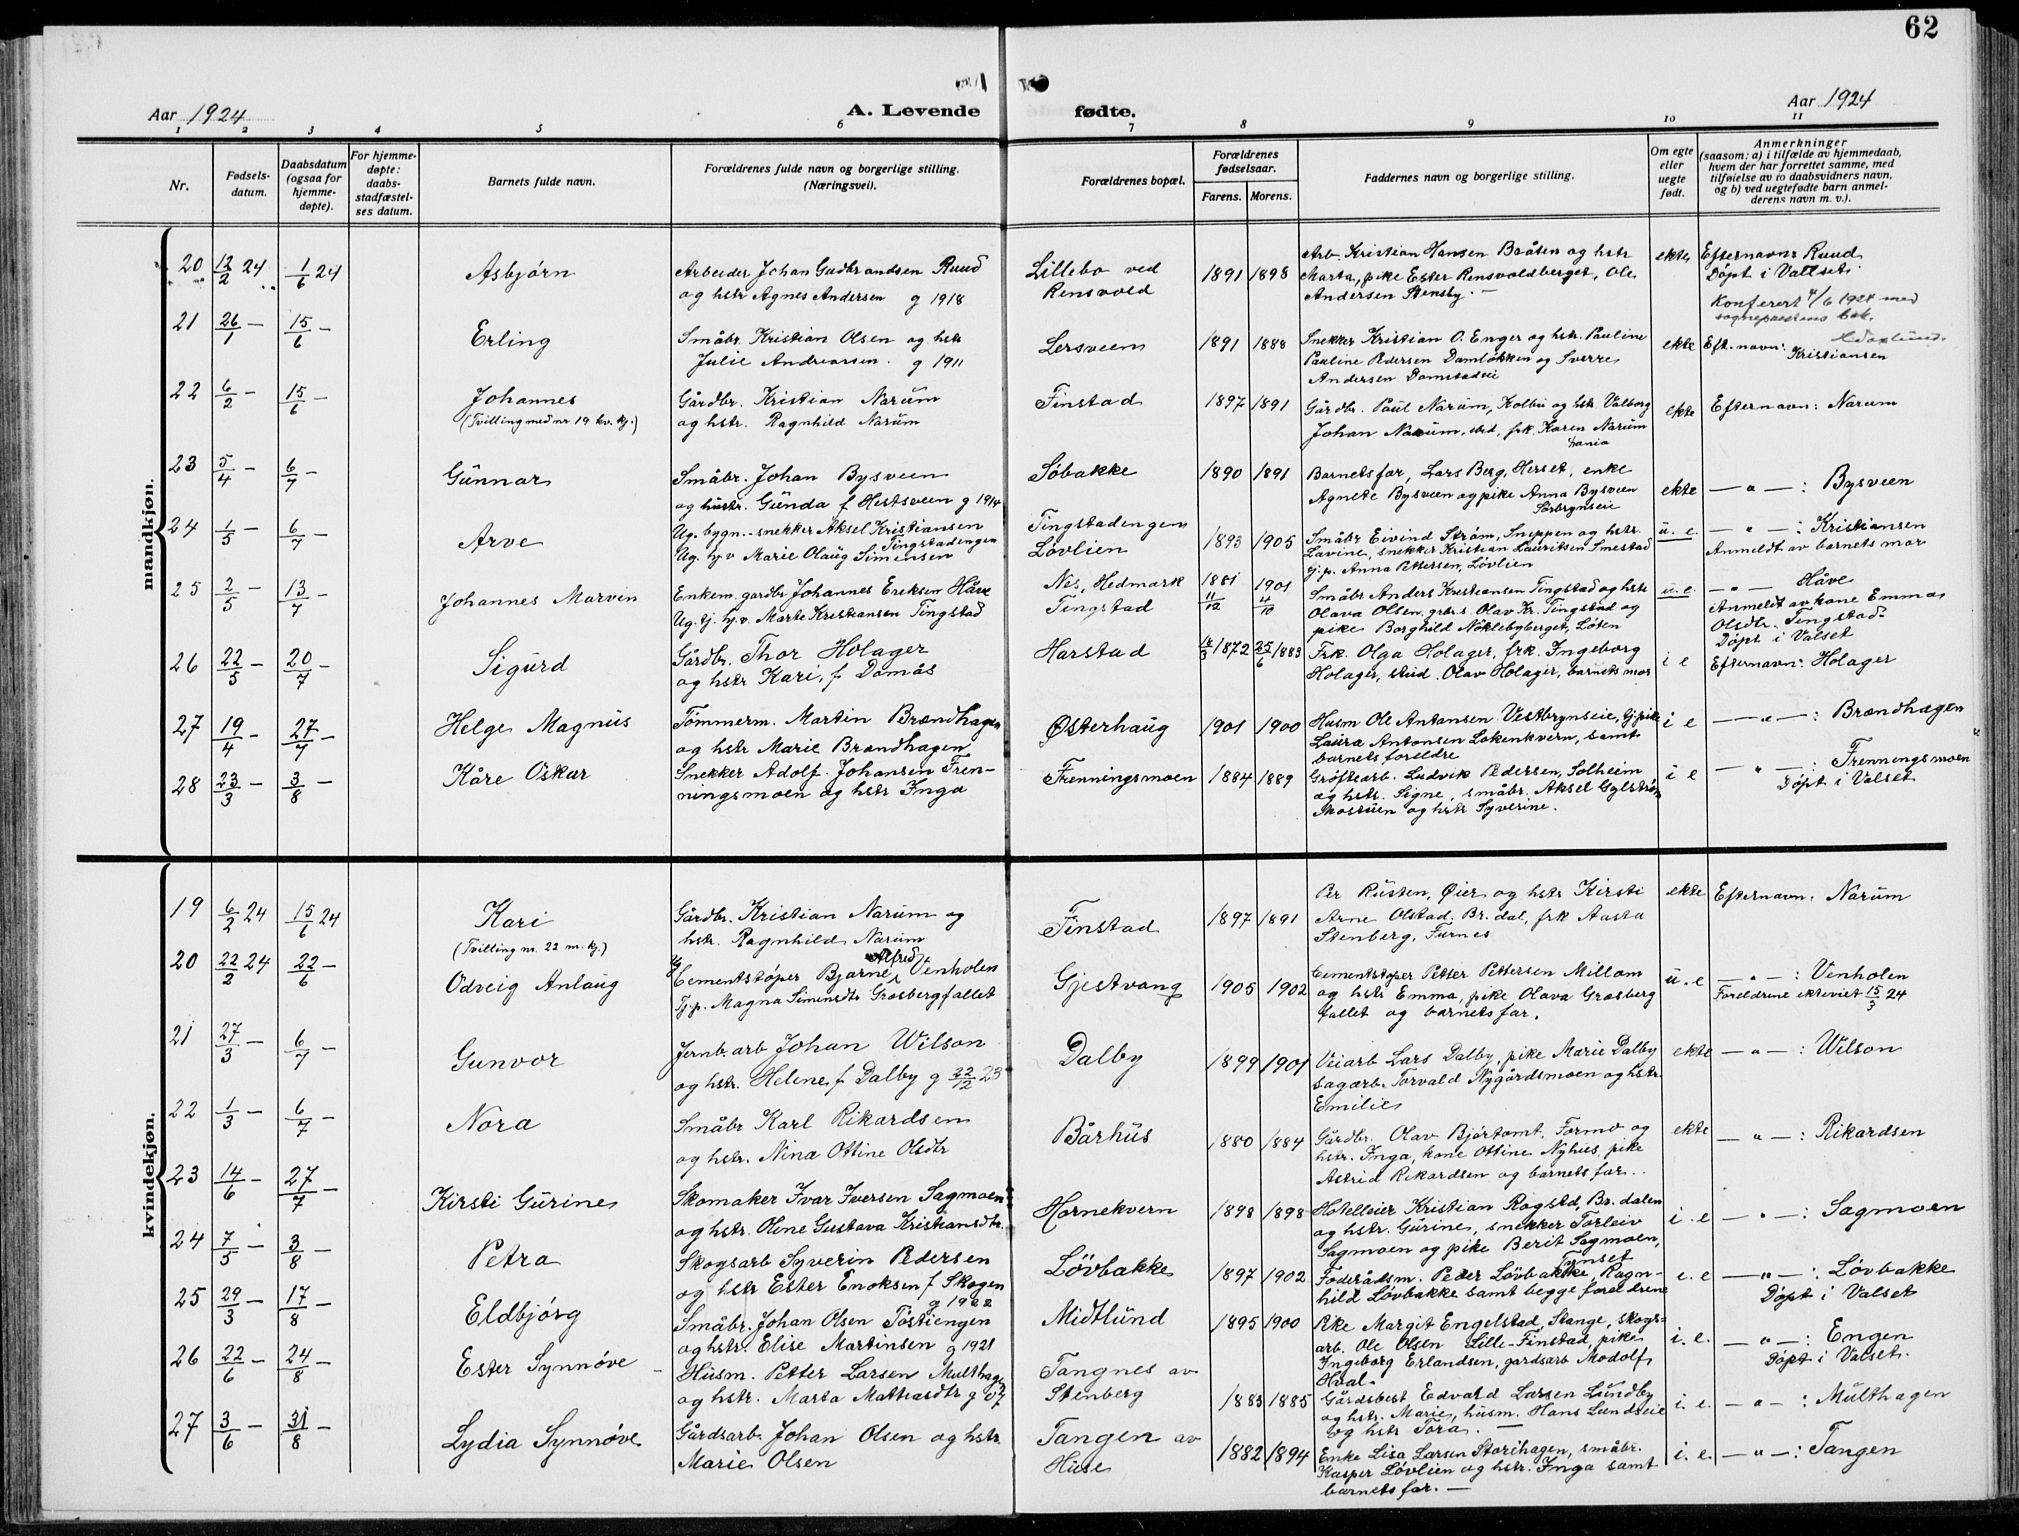 62
Aar 1924
A. Levende fødte.
Aar 1924
1 2 3 4 5 6 7 8 9 10 11
Nr.
Fødsels-
datum.
Daabsdatum
(ogsaa for
hjemme-
døpte).
For hjemme-
døpte:
daabs-
stadfæstel-
ses datum.
Barnets fulde navn.
Forældrenes fulde navn og borgerlige stilling.
(Næringsvei).
Forældrenes bopæl.
Forældrenes
fødselsaar.
Farens. Morens.
Faddernes navn og borgerlige stilling.
Om egte
eller
uegte
født.
Anmerkninger
(saasom: a) i tilfælde av hjemmedaab,
hvem der har forrettet samme, med
tilføielse av to daabsvidners navn,
og b) ved uegtefødte barn anmel-
derens navn m. v.).
mandkjøn.
20 12/2 24 1/6 24 Asbjørn
Arbeider Johan Gudbrandsen Ruud
og hstr Agnes Andersen g 1918
Lillebo ved
Rensvold
1891 1898
Arb. Kristian Hansen Bråten og hstr
Marta, pike Ester Rensvoldberget, Ole
Andersen Stensby. —
ekte
Efternavn: Ruud
Døpt i Valset.
Konferert 4/6 1924 med
sogneprestens bok.
21 26/1 — 15/6 — Erling
Småbr. Kristian Olsen og hstr
Julie Andreassen. g 1911
Lersveen
1891 1888
Snekker Kristian O. Enger og hstr. Pauline
Pauline Pedersen Damløkken og Sverre
Andersen Damstadeie
ekte
Eft. navn: Kristiansen
22 6/2 — 15/6 — Johannes
(Tvilling med nr 19 kv. kj.)
Gårdbr. Kristian Narum
og hstr. Ragnhild Narum
Finstad
1897 1891
Gårdbr. Paul Narum, Kolbu og hstr. Valborg
Johan Narum, ibid, frk. Karen Narum
ekte
Efternavn: Narum
23 5/4 — 6/7 — Gunnar
Småbr. Johan Bysveen
og hustr. Gunda f Hestsveen g 1914
Søbakke
1890 1891
Barnets far, Lars Berg, Herset, enke
Agnete Bysveen og pike Anna Bysveen
ekte
— " — : Bysveen
24 1/5 — 6/7 — Arve
Ug. bygn.-snekker Aksel Kristiansen
Tingstadengen
Ug. hj.v Marie Olaug Simensen
Tingstadengen
Løvlien
1893 1905
Småbr Eivind Strøm, Snippen og hstr.
Lavine, snekker Kristian Lauritsen Smestad
tj. p. Anna Pettersen, Løvlien
u. e.
— " — : Kristiansen
Anmeldt av barnets mor
25 2/5 — 13/7 — Johannes Marvin
Enkem. gardbr. Johannes Ereksen Håve
Ug. tj. hj.v. Marte Kristiansen Tingstad
Nes, Hedmark
Tingstad
1881 11/12 1901 4/10
Småbr Anders Kristiansen Tingstad og hstr
Olava Olsen, grbr.s. Olav Kr. Tingstad og
pike Borghild Nøklebyberget, Løten
u. e.
— " — Håve
Anmeldt av kone Emma
Olsdtr. Tingstad.
Døpt i Valset
26 22/5 — 20/7 — Sigurd
Gårdbr. Thor Holager
og hstr Kari, f Domås
Harstad
1872 25/6 1883
Frk. Olga Holager, frk. Ingeborg
Holager, stud. Olav Holager, barnets mor
i e
Efternavn: Holager
27 19/4 — 27/7 — Helge Magnus
Tømmerm. Martin Brændhagen
og hstr Marie Brændhagen
Østerhaug
1901 1900
Husm Ole Antonsen Vestbrynseie, tj. pike
Laura Antonsen Løkenkvern, samt
barnets foreldre
i e
— " — : Brændhagen
28 23/3 — 3/8 — Kåre Oskar
Snekker Adolf Johansen Fren-
ningsmoen og hstr Inga
Frenningsmoen
1884 1889
Grøftearb. Ludvik Pedersen, Solheim
og hstr. Signe, småbr. Aksel Gylstrøm
og hstr Syverine.
i e
— " — : Frenningsmoen
Døpt i Valset
kvindekjøn.
19 6/2 24 15/6 24 Kari
(Tvilling nr. 22 m. kj.)
Gårdbr. Kristian Narum og
hstr. Ragnhild Narum
Finstad
1897 1891
Per Rusten, Øier og hstr Kirsti
Arne Olstad, Br. dal, frk Aasta
Stenberg, Furnes
ekte
Efternavn: Narum
20 22/2 24 22/6 — Odveig Anlaug
Ug Cementstøper Bjarne Alfred Venholen
Tj. p. Magna Simensdtr Grasbergfallet
Gjestvang
1905 1902
Cementstøper Petter Pettersen Millom
og hstr Emma, pike Olava Grasberg
fallet og barnets far.
u. e
— " — : Venholen
Foreldrene ekteviet 15/3 24
21 27/3 — 6/7 — Gunvor
Jernb. arb Johan Wilson
og hstr. Helene f Dalby g 22/12 23
Dalby
1899 1901
Veiarb Lars Dalby, pike Marie Dalby
sagarb. Torvald Nygårdsmoen og hstr.
Emilie
ekte
— " — : Wilson
22 1/3 — 6/7 — Nora
Småbr Karl Rikardsen
og hstr. Nina Ottine Olsdtr
Bårhus
1880 1884
Gårdbr. Olav Bjørtomt, Formo og
hstr. Inga, kone Ottine Nyhus, pike
Astrid Rikardsen og barnets far.
ekte
— " — : Rikardsen
23 14/6 — 27/7 — Kirsti Gurine
Skomaker Ivar Iversen Sagmoen
og hstr. Oline Gustava Kristiansdtr.
Hornekvern
1898 1898
Hotelleier Kristian Rogstad, Br. dalen
og hstr. Gurine, snekker Torleiv
Sagmoen og pike Berit Sagmoen,
Tynset
i. e
— " — : Sagmoen
24 7/5 — 3/8 — Petra
Skogsarb Syverin Pedersen
og hstr Ester Enoksen f Skogen
g 1922
Løvbakke
1897 1902
Føderådsm. Peder Løvbakke, Ragn-
hild Løvbakke samt begge foreldrene
e. e
— " — : Løvbakke
Døpt i Valset
25 29/3 — 17/8 — Eldbjørg
Småbr. Johan Olsen Tostiengen
og hstr. Elise Martinsen g 1921
Midtlund
1895 1900
Pike Margit Engelstad, Stange, skogs-
arb. Ole Olsen Lille-Finstad, pike
Ingeborg Erlandsen, gardsarb Modolf
Hval.
i. e.
— " — : Engen
Døpt i Valset.
26 22/6 — 24/8 — Ester Synnøve
Husm. Petter Larsen Multhagen
og hstr. Marta Mattiasdtr g 07
Tangnes av
Stenberg
1883 1885
Gårdsbest Edvard Larsen Lundby
og hstr. Marie, husm. Hans Lundseie
og hstr Tora. —
i. e.
— " — : Multhagen
27 3/6 — 31/8 — Lydia Synnøve
Gårdsarb. Johan Olsen og hstr.
Marie Olsen
Tangen av
Huse
1882 1894
Enke Lisa Larsen Storihagen, småbr.
Kasper Løvlien og hstr. Inga samt
barnets far. —
i. e.
— " — : Tangen